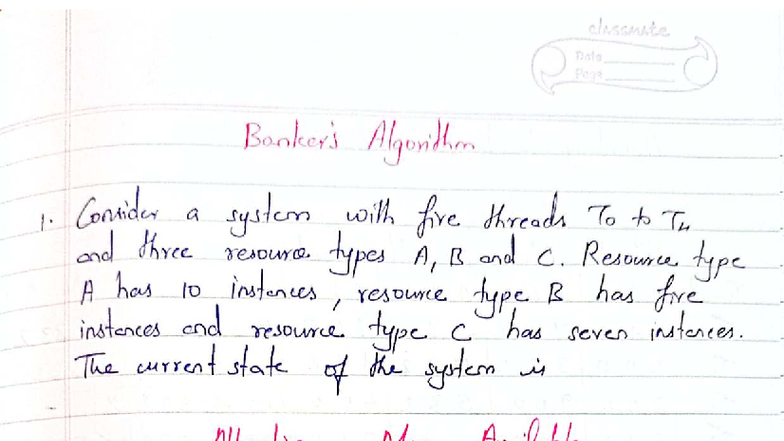 classmate
Date
Page
Banker's Algorithm
1. Consider a system with five threads T0 to T4
and three resource types A, B and C. Resource type
A has 10 instances, resource type B has five
instances and resource type C has seven instances.
The current state of the system is